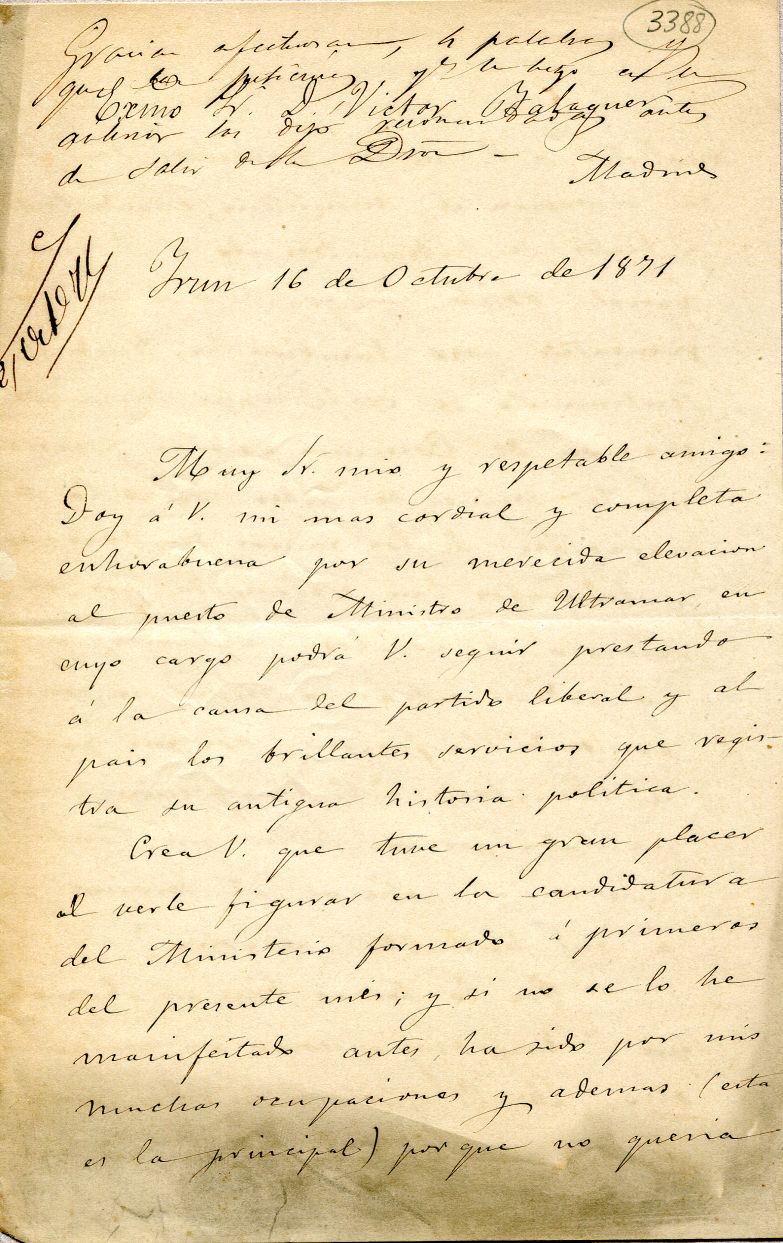 3388
Gracias afectuosas,
que
Exmo Sr. D. Victor Balaguer
antes
de salir de la Dson
Madrid
Irun 16 de Octubre de 1871
Muy Sr. mio y respetable amigo:
Doy á V. mi mas cordial y completa
enhorabuena por su merecida elevacion
al puesto de Ministro de Ultramar, en
cuyo cargo podrá V. seguir prestando
á la causa del partido liberal y al
pais los brillantes servicios que regis-
tra su antigua historia politica.
Crea V. que tuve un gran placer
al verle figurar en la candidatura
del Ministerio formado á primeros
del presente mes; y si no se lo he
manifestado antes, ha sido por mis
muchas ocupaciones y ademas (esta
es la principal) porque no queria